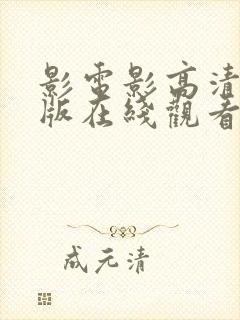 影電影高清
版在綫觀看
成元清